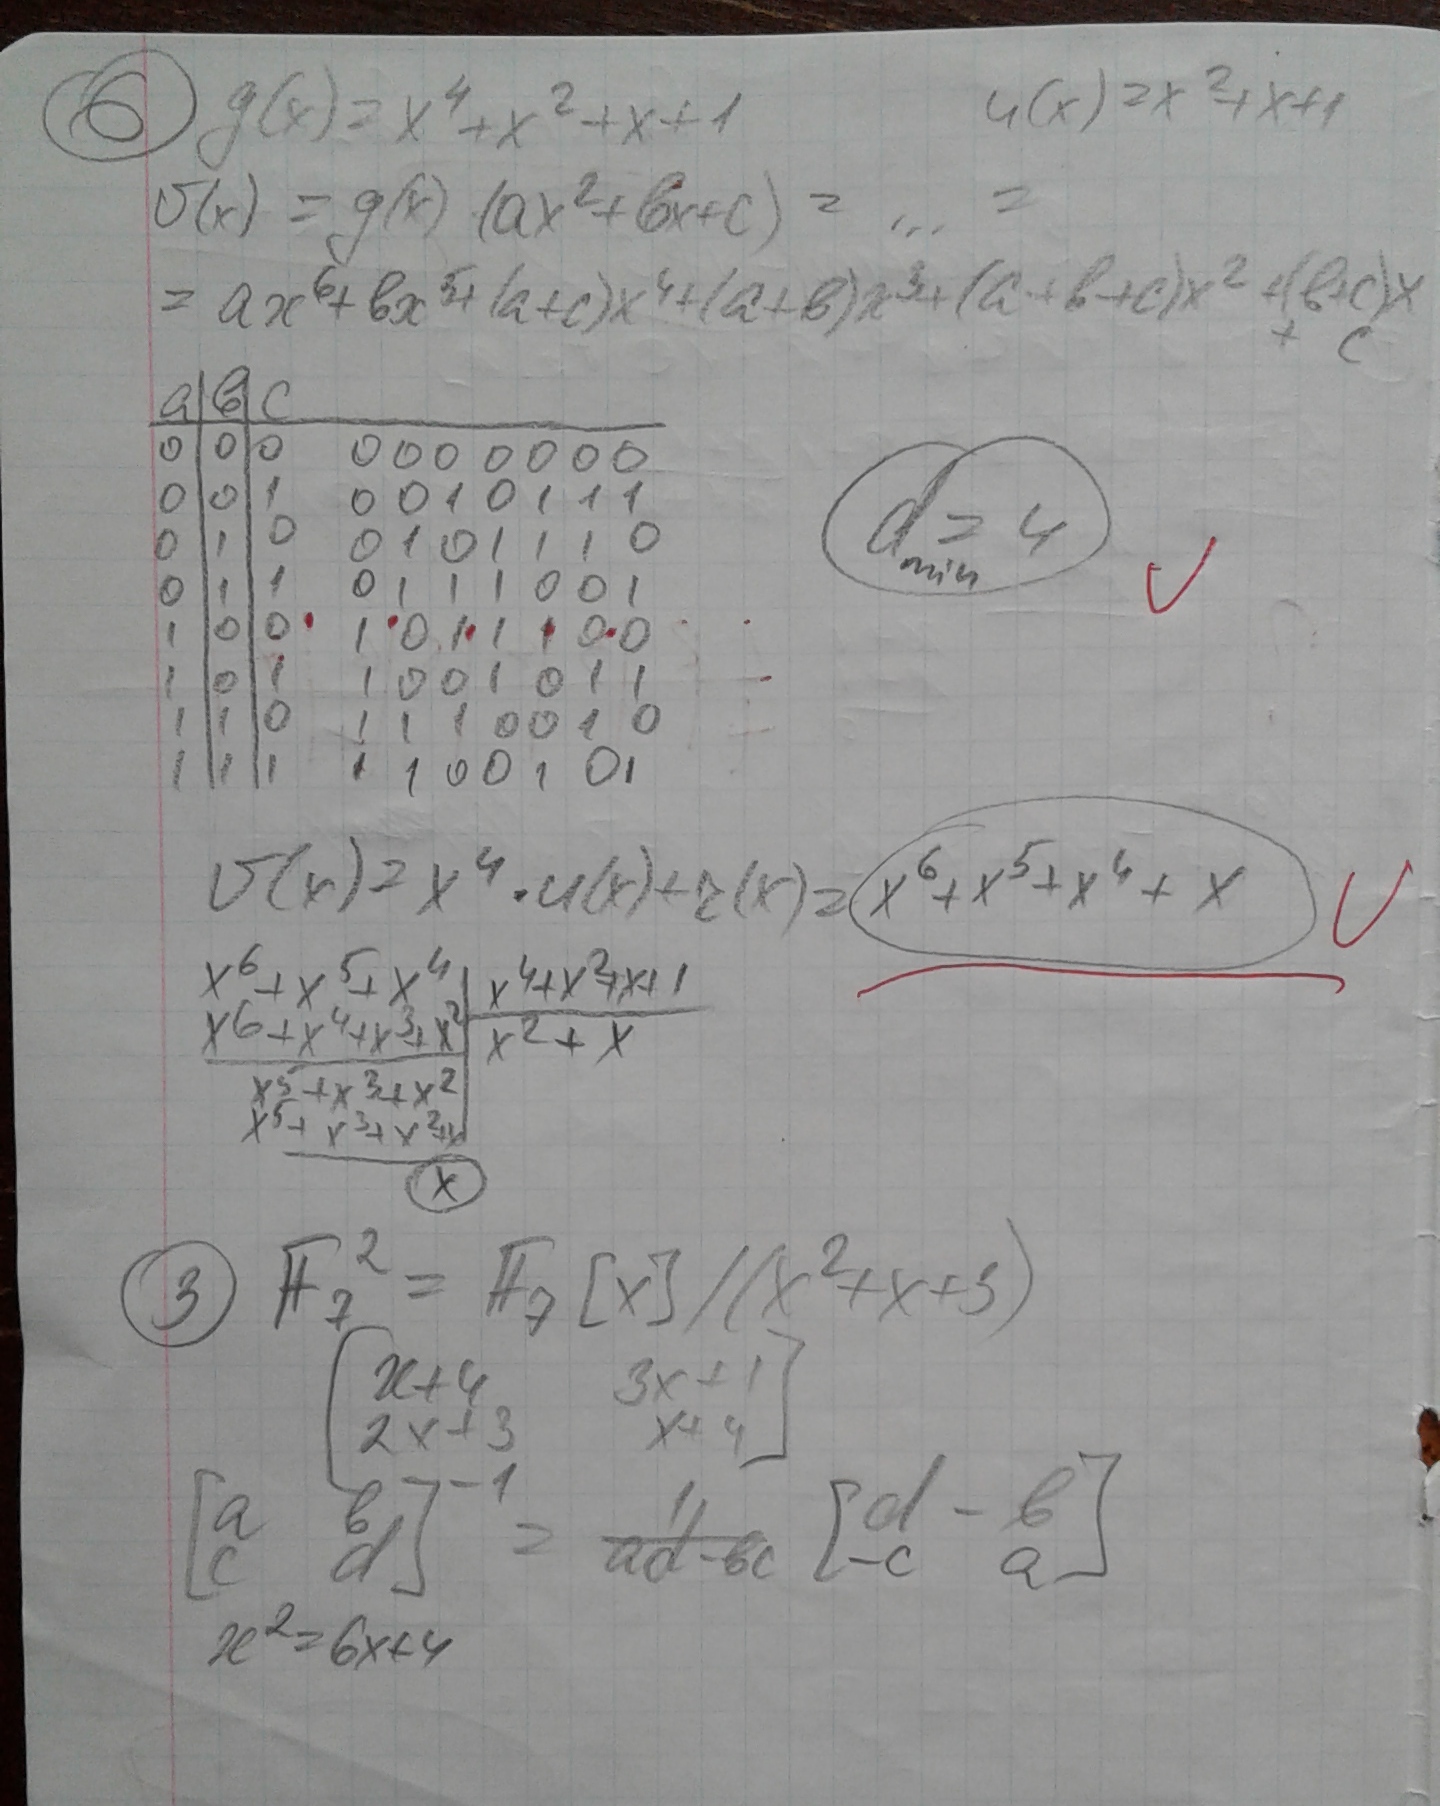 6 g(x) = x⁴ + x² + x + 1 u(x) = x² + x + 1
v(x) = g(x) (ax² + bx + c) = ... =
= ax⁶ + bx⁵ + (a+c)x⁴ + (a+b)x³ + (a+b+c)x² + (b+c)x
+ c
a b c
0 0 0 0 0 0 0 0 0 0
0 0 1 0 0 1 0 1 1 1
0 1 0 0 1 0 1 1 1 0
0 1 1 0 1 1 1 0 0 1
1 0 0 1 0 1 1 1 0 0
1 0 1 1 0 0 1 0 1 1
1 1 0 1 1 1 0 0 1 0
1 1 1 1 1 0 0 1 0 1
d min = 4 ✓
v(x) = x⁴ · u(x) + r(x) = x⁶ + x⁵ + x⁴ + x ✓
x⁶ + x⁵ + x⁴ | x⁴ + x² + x + 1
x⁶ + x⁴ + x³ + x² | x² + x
x⁵ + x³ + x²
x⁵ + x³ + x² + x
x
3 𝔽₇² = 𝔽₇ [x] / (x² + x + 3)
[ x+4 3x+1
2x+3 x+4 ]
[ a b
c d ]⁻¹ = 1/(ad-bc) [ d -b
-c a ]
x² = 6x + 4